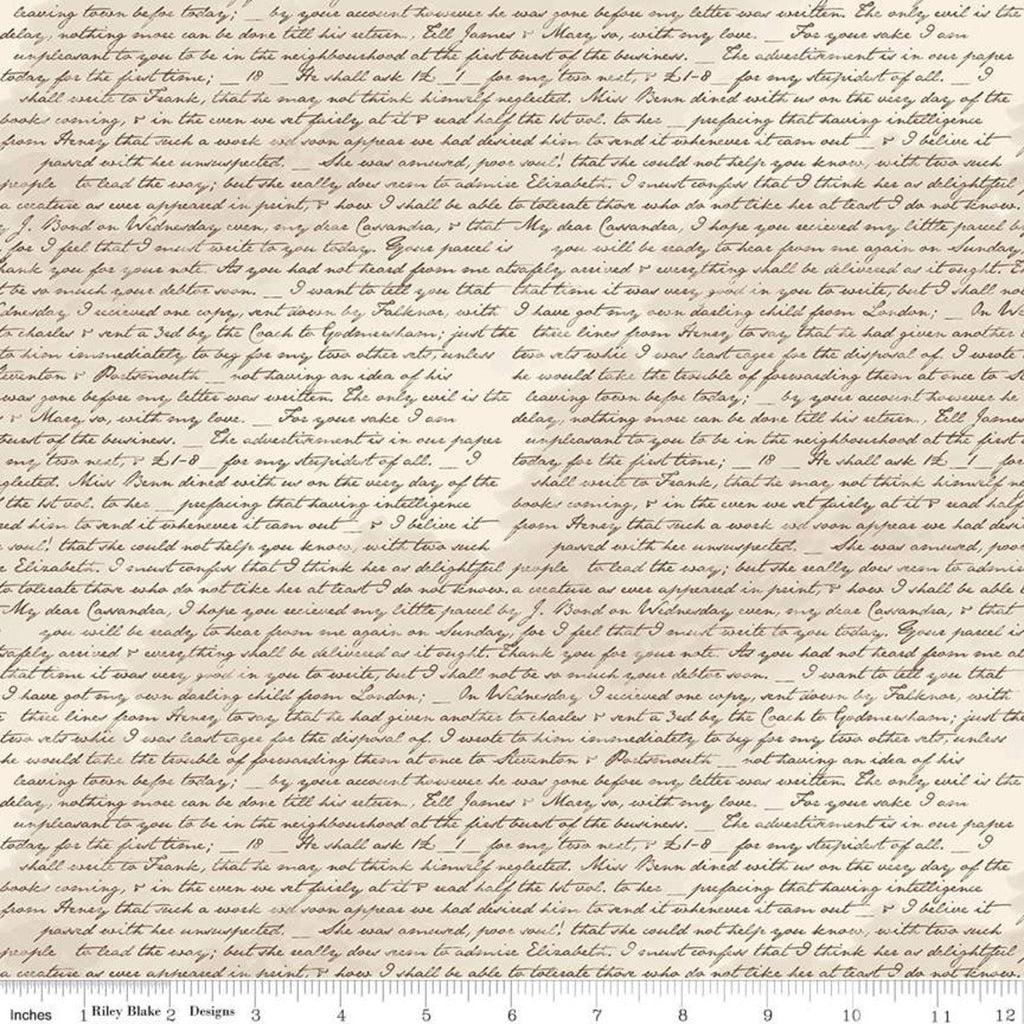 leaving town befor today; __ by your account however he was gone before my letter was written. The only evil is the
delay, nothing more can be done till his return., Tell James & Mary so, with my love. __ For your sake I am
unpleasant to you to be in the neighbourhood at the first burst of the business. __ The advertisment is in our paper
today for the first time; __ 18 __ He shall ask 1£ __1__ for my two next, & £1-8 __ for my stupidest of all. __ I
shall write to Frank, that he may not think himself neglected. Miss Benn dined with us on the very day of the
books coming, & in the even we set fairly at it & read half the 1st vol. to her __ prefacing that having intelligence
from Henry that such a work wd soon appear we had desired him to send it whenever it cam out __ & I belive it
passed with her unsuspected. __ She was amused, poor soul! that she could not help you know, with two such
people to lead the way; but she really does seem to admire Elizabeth. I must confess that I think her as delightful
a creature as ever appeared in print, & how I shall be able to tolerate those who do not like her at least I do not know.
y J. Bond on Wednesday even, my dear Cassandra, & that My dear Cassandra, I hope you recieved my little parcel by
for I feel that I must write to you today. Gyour parcel is you will be ready to hear from me again on Sunday,
hank you for your note. As you had not heard from me at safely arrived & everything shall be delivered as it ought. T
t be so much your debtor soon. __ I want to tell you that that time it was very good in you to write, but I shall no
dnesday I recieved one copy, sent down by Falknor, with I have got my own darling child from London; __ On We
to charles & sent a 3ed by the Coach to Godmersham; just the three lines from Henry to say that he had given another
to him immediately to beg for my two other sets, unless two sets whic I was least eager for the disposal of. I wrote
teventon & Portsmouth __ not having an idea of his he would take the trouble of forwarding them at once to St
was gone before my letter was written. The only evil is the leaving town befor today; __ by your account however he
& Mary so, with my love. __ For your sake I am delay, nothing more can be done till his return., Tell James
burst of the business. __ The advertisment is in our paper unpleasant to you to be in the neighbourhood at the first
my two next, & £1-8 __ for my stupidest of all. __ I today for the first time; __ 18 __ He shall ask 1£ __1__ for
glected. Miss Benn dined with us on the very day of the shall write to Frank, that he may not think himself ne
the 1st vol. to her __ prefacing that having intelligence books coming, & in the even we set fairly at it & read half
red him to send it whenever it cam out __ & I belive it from Henry that such a work wd soon appear we had desi
soul! that she could not help you know, with two such passed with her unsuspected. __ She was amused, poor
e Elizabeth. I must confess that I think her as delightful people to lead the way; but she really does seem to admire
to tolerate those who do not like her at least I do not know. a creature as ever appeared in print, & how I shall be able
My dear Cassandra, I hope you recieved my little parcel by J. Bond on Wednesday even, my dear Cassandra, & that
you will be ready to hear from me again on Sunday, for I feel that I must write to you today. Gyour parcel is
safely arrived & everything shall be delivered as it ought. Thank you for your note. As you had not heard from me at
that time it was very good in you to write, but I shall not be so much your debtor soon. __ I want to tell you that
I have got my own darling child from London; __ On Wednesday I recieved one copy, sent down by Falknor, with
three lines from Henry to say that he had given another to charles & sent a 3ed by the Coach to Godmersham; just the
two sets whic I was least eager for the disposal of. I wrote to him immediately to beg for my two other sets, unless
he would take the trouble of forwarding them at once to Steventon & Portsmouth __ not having an idea of his
leaving town befor today; __ by your account however he was gone before my letter was written. The only evil is the
delay, nothing more can be done till his return., Tell James & Mary so, with my love. __ For your sake I am
unpleasant to you to be in the neighbourhood at the first burst of the business. __ The advertisment is in our paper
today for the first time; __ 18 __ He shall ask 1£ __1__ for my two next, & £1-8 __ for my stupidest of all. __ I
shall write to Frank, that he may not think himself neglected. Miss Benn dined with us on the very day of the
books coming, & in the even we set fairly at it & read half the 1st vol. to her __ prefacing that having intelligence
from Henry that such a work wd soon appear we had desired him to send it whenever it cam out __ & I belive it
passed with her unsuspected. __ She was amused, poor soul! that she could not help you know, with two such
people to lead the way; but she really does seem to admire Elizabeth. I must confess that I think her as delightful
a creature as ever appeared in print, & how I shall be able to tolerate those who do not like her at least I do not know.
Inches 1 Riley Blake 2 Designs 3 4 5 6 7 8 9 10 11 12